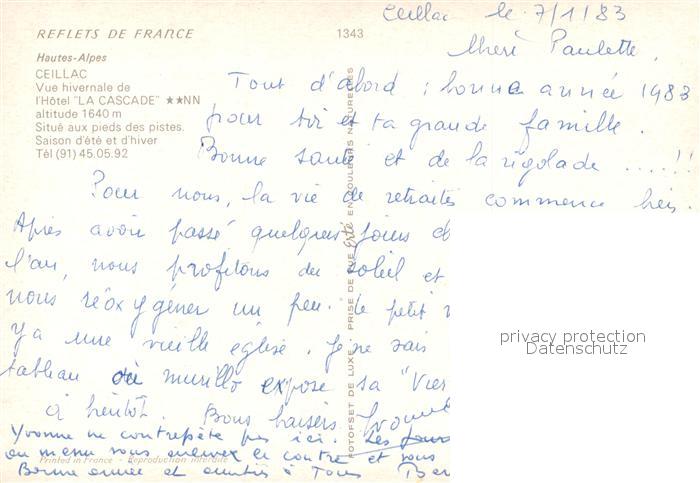 Ceillac le 7/1/83
REFLETS DE FRANCE
1343
Hautes-Alpes
CEILLAC
Vue hivernale de
l'Hôtel "LA CASCADE" ★★NN
altitude 1640 m
Situé aux pieds des pistes.
Saison d'été et d'hiver
Tél (91) 45.05.92
Chère Paulette,
Tout d'abord : bonne année 1983
pour toi et ta grande famille.
Bonne santé et de la rigolade .....!!
Pour nous, la vie de retraités commence bien.
Après avoir passé quelques jours
l'an, nous profitons du soleil et
nous réoxygéner un peu. Le petit
y a une vieille église. Je ne sais
tableau où murillo expose sa "Vier
à bientôt. Bons baisers. Yvonne
Yvonne ne contrepète pas ici. Les
au menu vous en contre et vous
Bonne année et amitiés à Tous Ber
PHOTOFSET DE LUXE PRISE DE VUE EN COULEURS NATURELLES
Printed in France - Reproduction interdite
privacy protection
Datenschutz